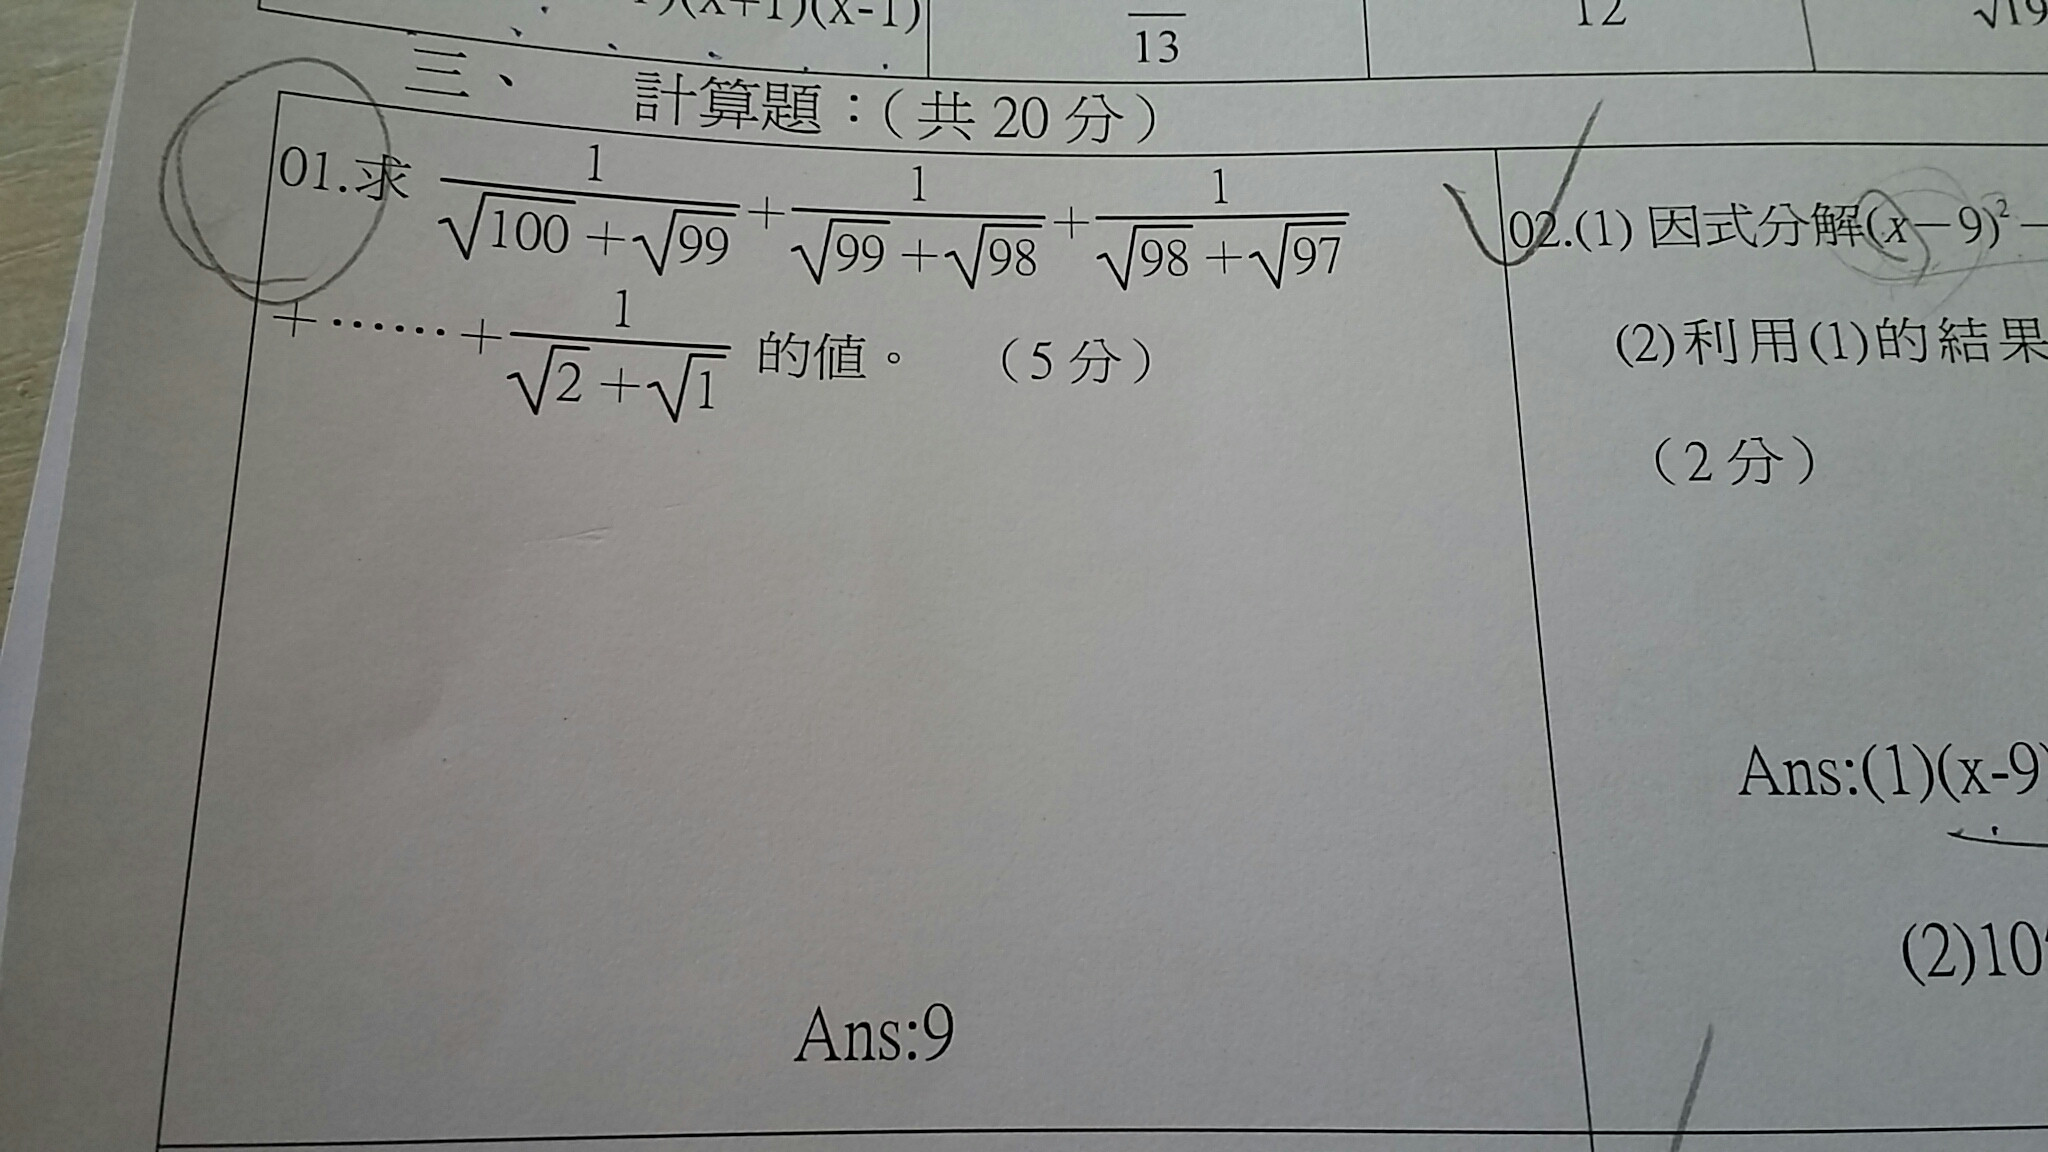 )(x+1)(x-1)
13
12
√19
三、 計算題：（共 20 分）
01.求 1/(√100+√99) + 1/(√99+√98) + 1/(√98+√97)
+⋯⋯+ 1/(√2+√1) 的值。 （5 分）
Ans:9
02.(1) 因式分解(x－9)²－
(2)利用(1)的結果
（2 分）
Ans:(1)(x-9)
(2)10